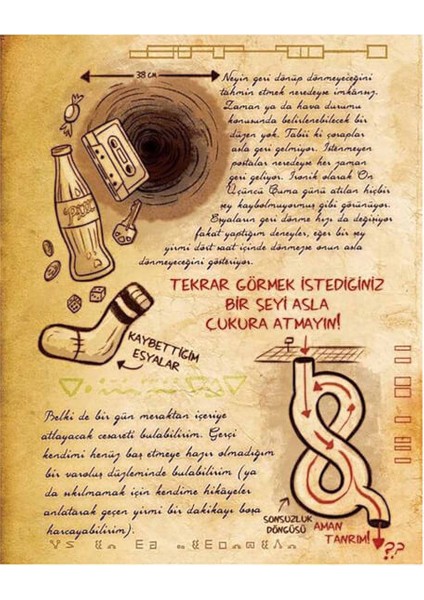 38 CM
Neyin geri dönüp dönmeyeceğini
tahmin etmek neredeyse imkânsız.
Zaman ya da hava durumu
konusunda belirlenebilecek bir
düzen yok. Tabii ki çoraplar
asla geri gelmiyor. İstenmeyen
postalar neredeyse her zaman
geri geliyor. İronik olarak On
Üçüncü Cuma günü atılan hiçbir
şey kaybolmuyormuş gibi görünüyor.
Eşyaların geri dönme hızı da değişiyor
fakat yaptığım deneyler, eğer bir şey
yirmi dört saat içinde dönmezse onun asla
dönmeyeceğini gösteriyor.
TEKRAR GÖRMEK İSTEDİĞİNİZ
BİR ŞEYİ ASLA
ÇUKURA ATMAYIN!
KAYBETTİĞİM
EŞYALAR
Belki de bir gün meraktan içeriye
atlayacak cesareti bulabilirim. Gerçi
kendimi henüz baş etmeye hazır olmadığım
bir varoluş düzleminde bulabilirim (ya
da sıkılmamak için kendime hikâyeler
anlatarak geçen yirmi bir dakikayı boşa
harcayabilirim).
SONSUZLUK
DÖNGÜSÜ
AMAN
TANRIM!
??